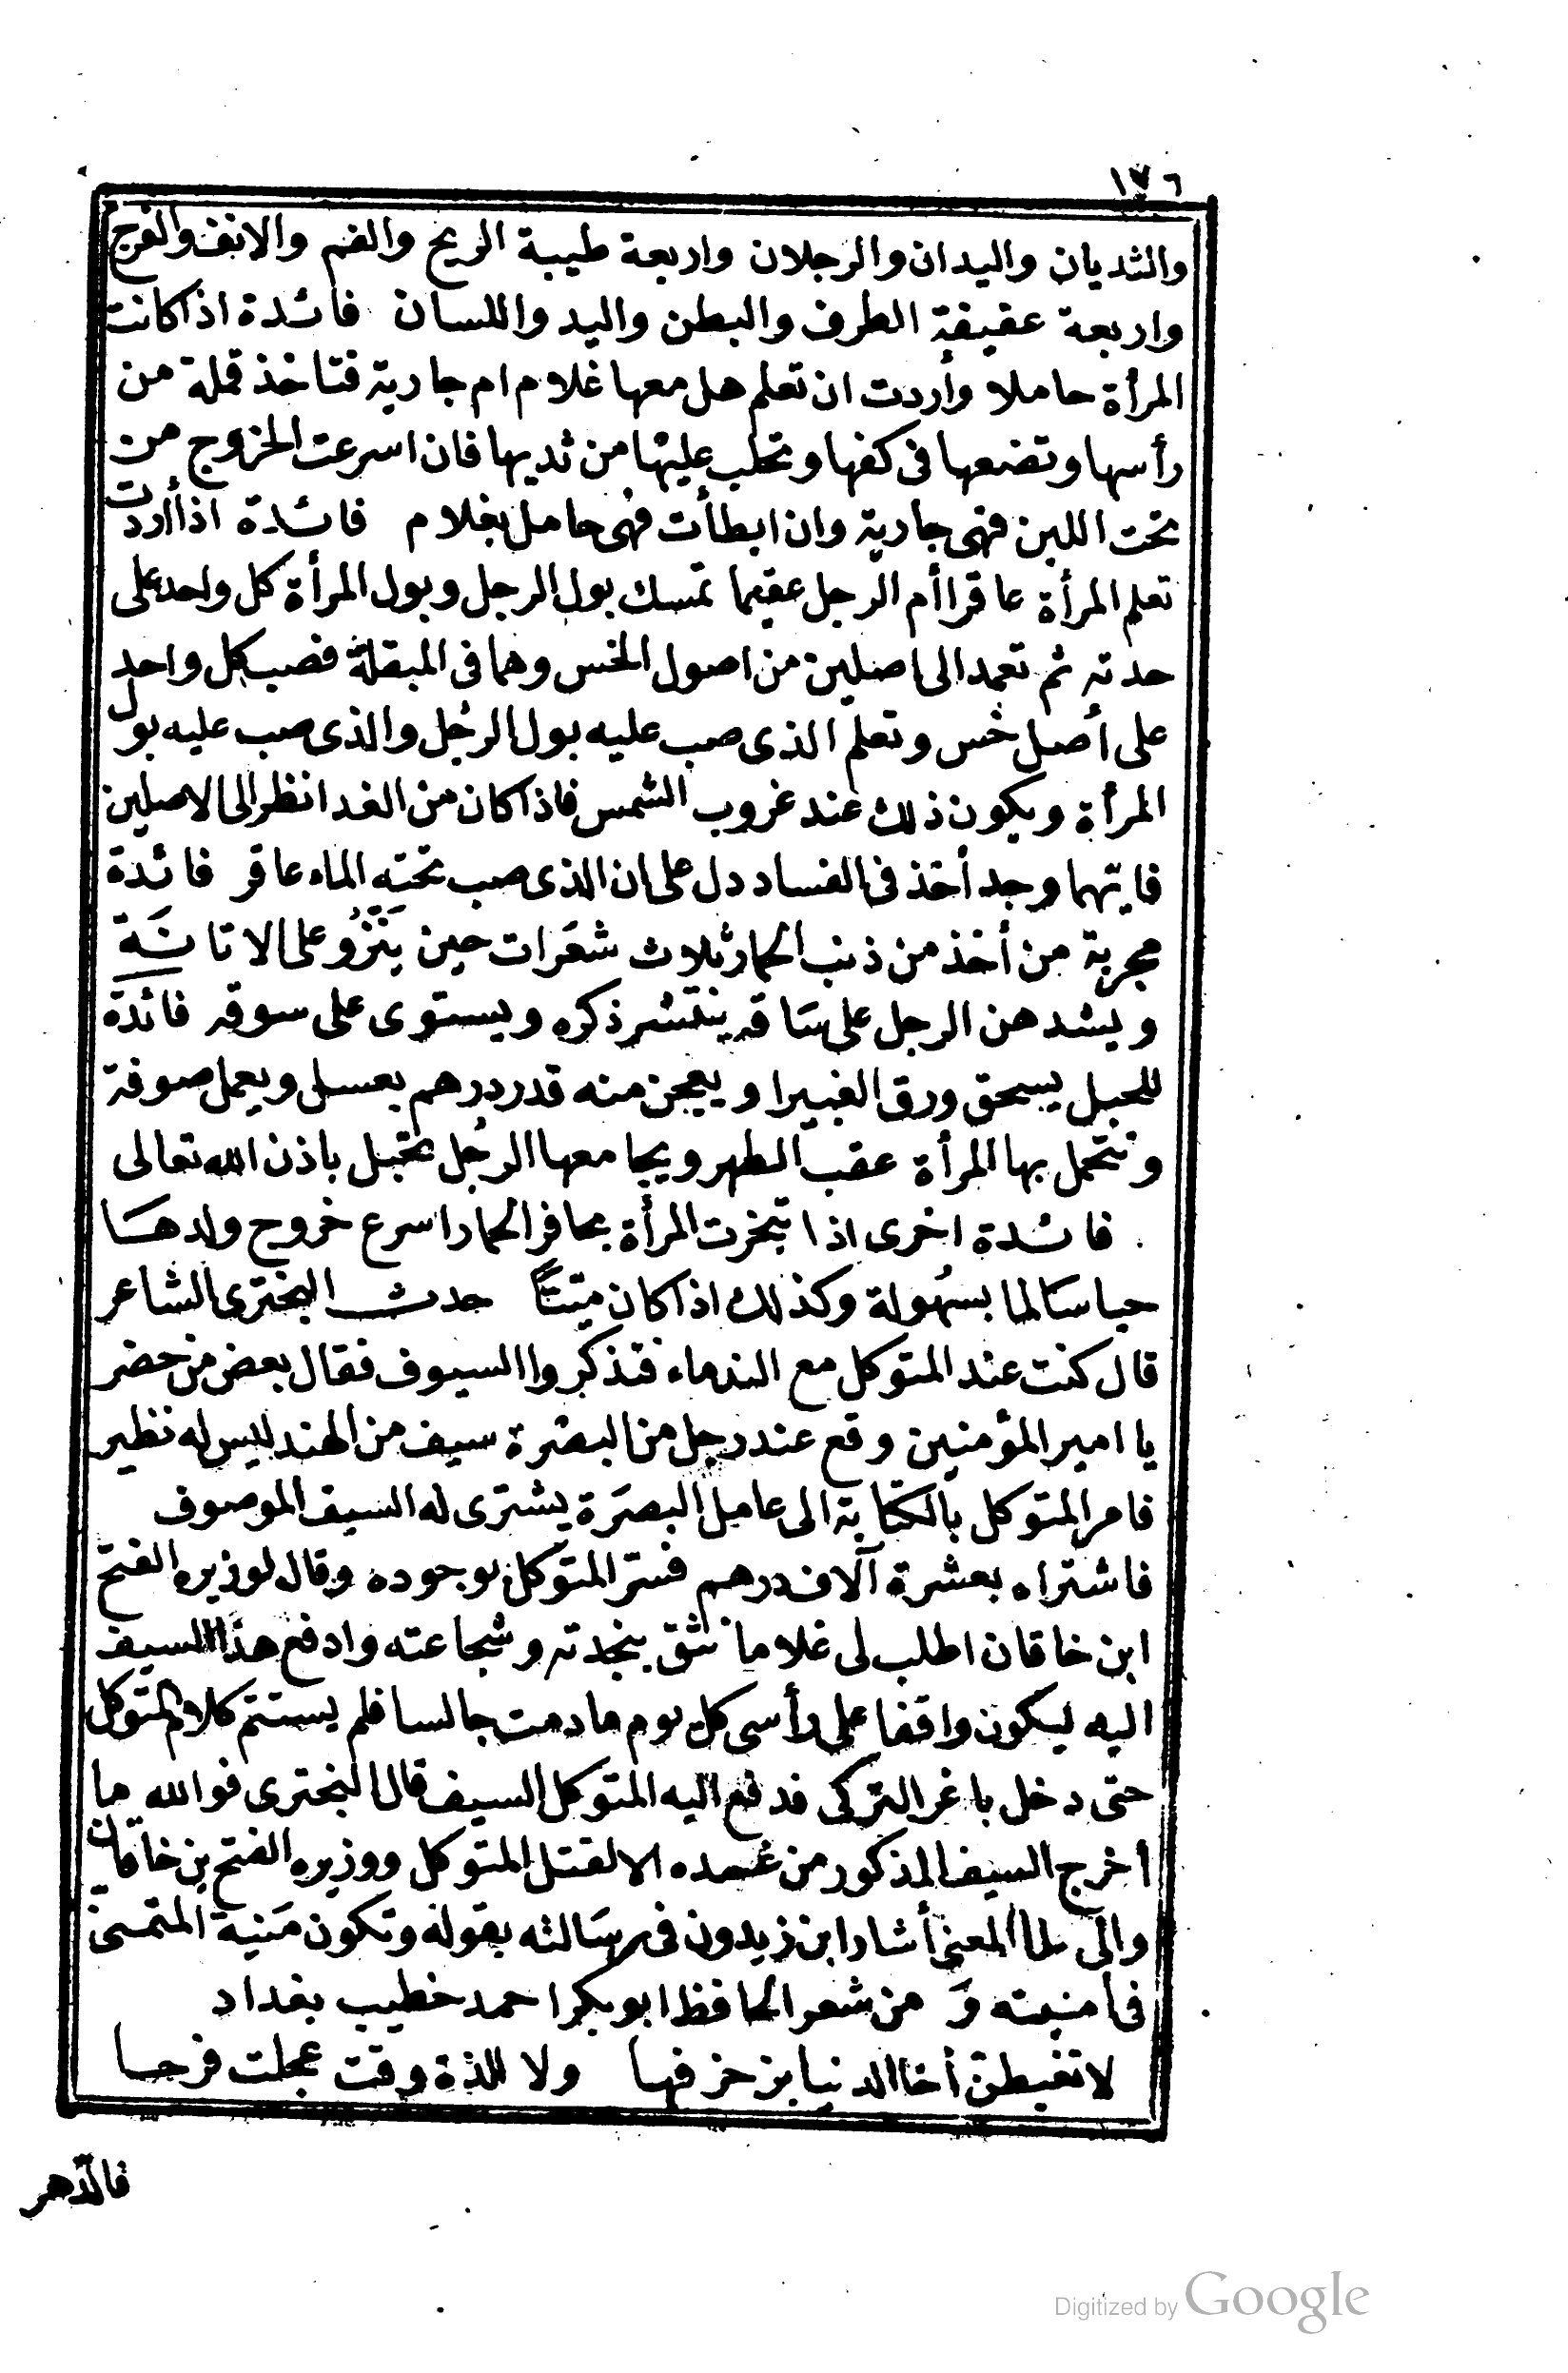 ١٧٦
والثديان واليدان والرجلان واربعة طيبة الريح والفم والانف والفرج
واربعة عفيفة الطرف والبطن واليد واللسان فائدة اذا كانت
المرأة حاملا وأردت ان تعلم هل معها غلام ام جارية فتاخذ قملة من
رأسها وتضعها فى كفها وتحلب عليها من ثديها فان اسرعت الخروج من
تحت اللبن فهى جارية وان ابطأت فهى حامل بغلام فائدة اذا أردت
تعلم المرأة عاقرا أم الرجل عقيما تمسك بول الرجل وبول المرأة كل واحد على
حدته ثم تعمد الى اصلين من اصول الخس وهما فى المبقلة فصب كل واحد
على أصل خس وتعلم الذى صب عليه بول الرجل والذى صب عليه بول
المرأة ويكون ذلك عند غروب الشمس فاذا كان من الغد انظر الى الاصلين
فايتهما وجد أخذ فى الفساد دل على ان الذى صب تحته الماء عاقر فائدة
مجربة من أخذ من ذنب الحمار ثلاث شعرات حين يَنْزُو على الاتانة
ويشدهن الرجل على ساقه ينتشر ذكره ويستوى على سوقه فائدة
للحبل يسحق ورق الغبيرا ويعجن منه قدر درهم بعسل ويعمل صوفة
وتتحمل بها المرأة عقب الطهر ويجامعها الرجل تحبل باذن الله تعالى
فائدة اخرى اذا تبخرت المرأة بحافر الحمار اسرع خروج ولدها
حيا سالما بسهولة وكذلك اذا كان ميتاً حدث البحترى الشاعر
قال كنت عند المتوكل مع الندماء فتذكروا السيوف فقال بعض من حضر
يا امير المؤمنين وقع عند رجل من البصرة سيف من الهند ليس له نظير
فامر المتوكل بالكتابة الى عامل البصرة يشترى له السيف الموصوف
فاشتراه بعشرة آلاف درهم فسر المتوكل بوجوده وقال لوزيره الفتح
ابن خاقان اطلب لى غلاما تثق بنجدته وشجاعته وادفع هذا السيف
اليه ليكون واقفا على رأسى كل يوم ما دمت جالسا فلم يستتم كلام المتوكل
حتى دخل باغر التركى فدفع اليه المتوكل السيف قال البحترى فوالله ما
أخرج السيف المذكور من غمده الا لقتل المتوكل ووزيره الفتح بن خاقان
والى المعنى أشار ابن زيدون فى رسالته بقوله وتكون منية المتمنى
فى امنيته وَ من شعر الحافظ ابو بكر احمد خطيب بغداد
لا تغبطن أخا الدنيا بزخرفها ولا للذة وقت عجلت فرحا
فالدهر
Digitized by Google